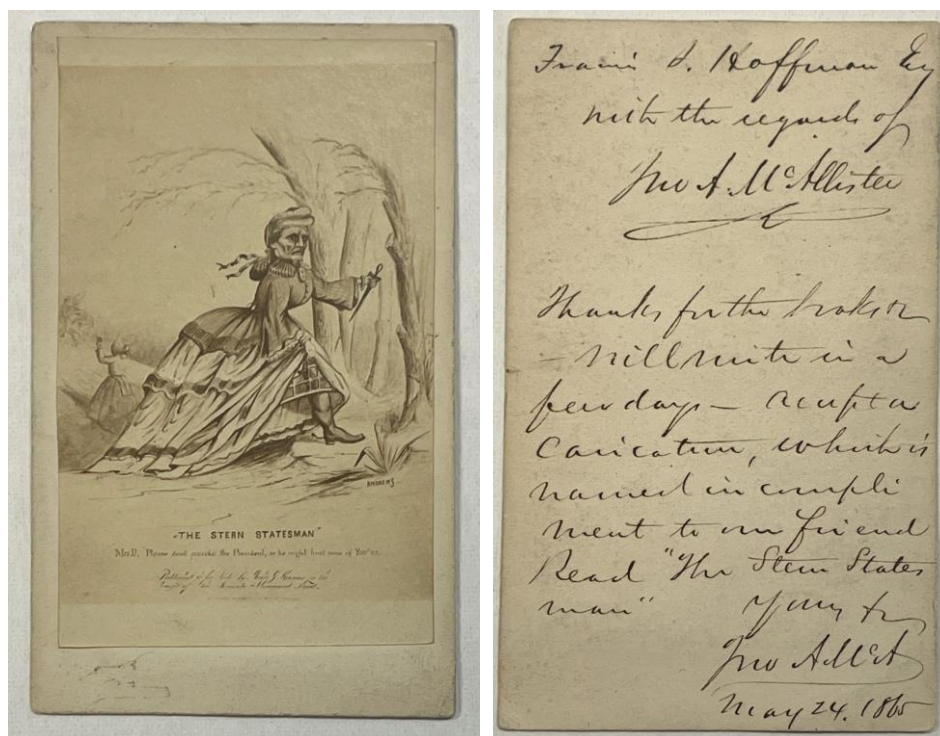 ANDREWS
"THE STERN STATESMAN"
Mrs. D. Please dont provoke the President, or he might hurt some of You'ns.
Francis S. Hoffman Esq
with the regards of
Jno A. McAllister
Thanks for the books &c
- will write in a
few days - accept a
Caricature, which is
named in compli
ment to our friend
Read "The Stern States
man"
Yours tr
Jno A McA
May 24. 1865